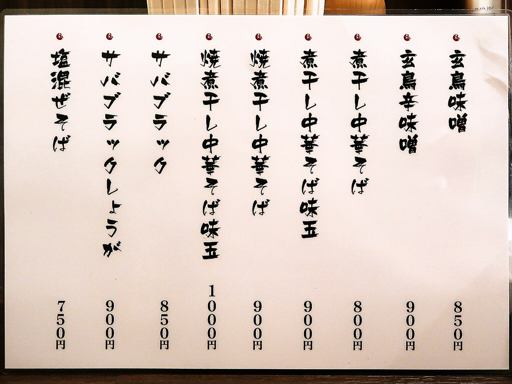 玄鳥味噌
850円
玄鳥辛味噌
900円
煮干し中華そば
800円
煮干し中華そば味玉
900円
焼煮干し中華そば
900円
焼煮干し中華そば味玉
1000円
サバブラック
850円
サバブラックしょうが
900円
塩混ぜそば
750円